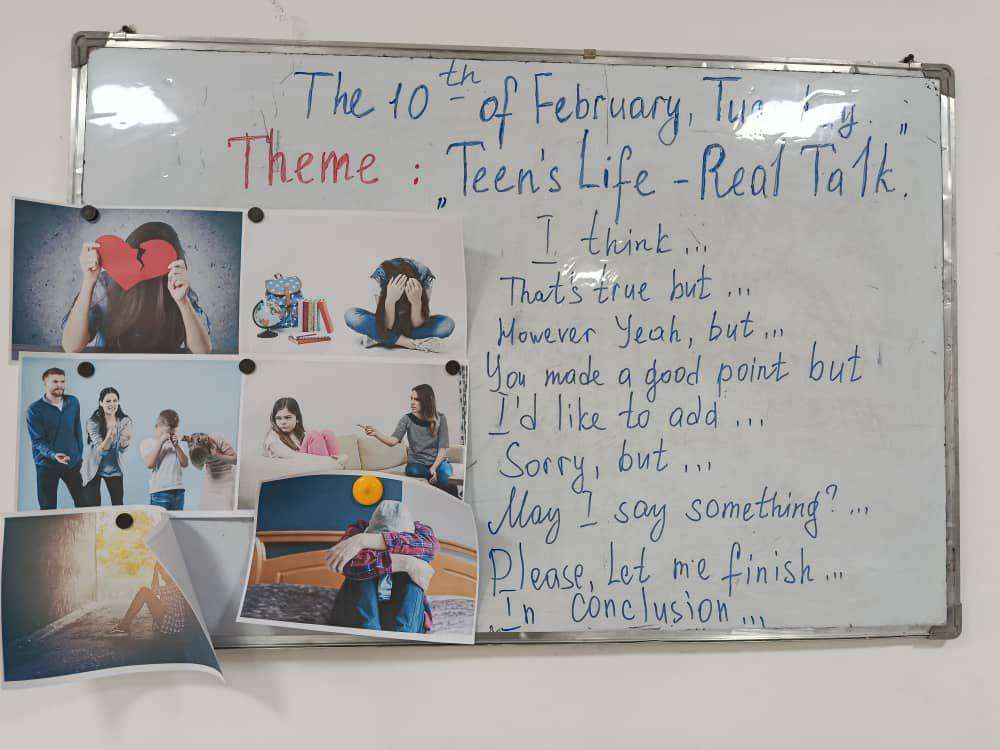 The 10th of February, Tuesday.
Theme : „Teen's Life - Real Talk.”
I think...
That's true but ...
However Yeah, but...
You made a good point but
I'd like to add ...
Sorry, but ...
May I say something?...
Please, Let me finish...
In conclusion...